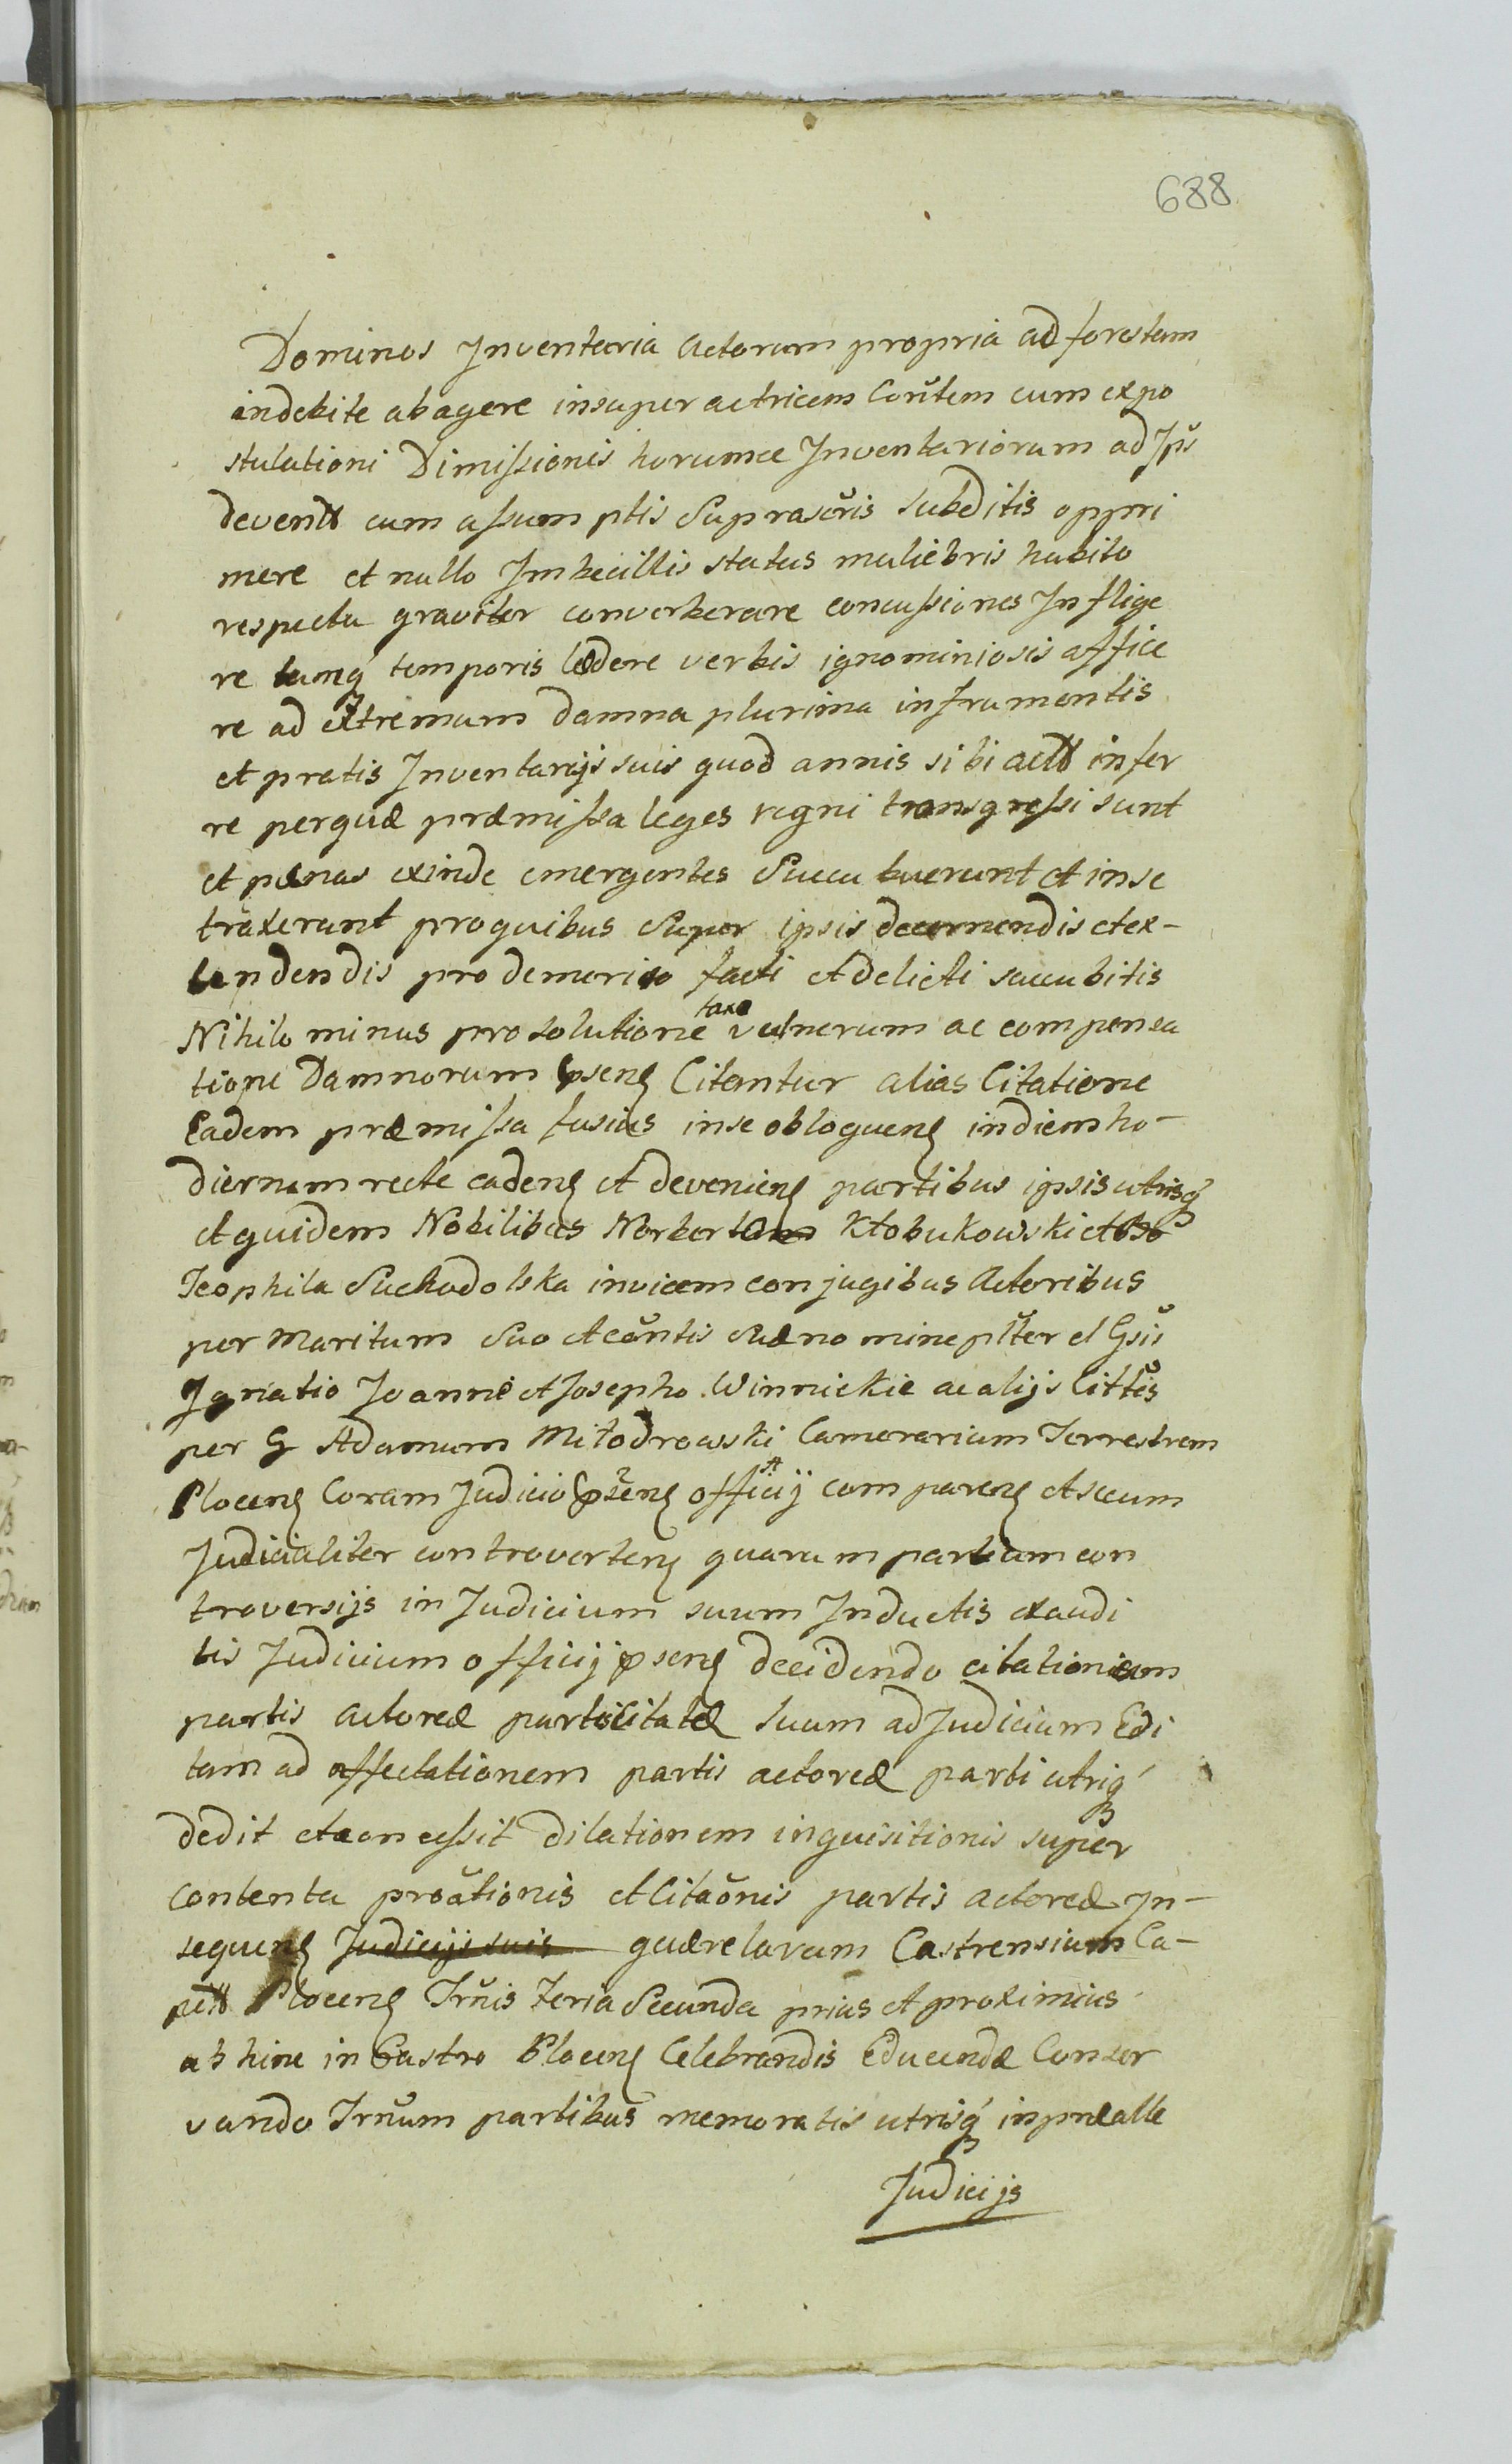 688
Dominos Inventaria Actorum propria ad forestam
indebite abagere insuper actricem Con̆tem cum expo
stulationi Dimissionis horumce Inventariorum ad Ips̆
cum assumptis Suprascr̆is subditis oppri
mere et nullo Imbecillis status muliebris habito
respectu graviter converberare concussiones Inflige
re temporis lædere verbis ignominiosis affice
re ad extremum Damna plurima in frumentis
et pratis Inventarijs suis quod annis sibi infer
re per quæ præmissa leges regni transgressi sunt
et pænas exinde emergentes Succubuerunt et in se
traxerunt pro quibus Super ipsis decernendis et ex-
tendendis pro demerito facti et delicti succubitis
Nihilo minus pro solutione taxæ vulnerum ac compensa
tione Damnorum pseng Citantur alias Citatione
Eadem præmissa fusius in se obloqueng in diem ho-
diernum recte cadeng et devenieng partibus ipsis utrisq́
et quidem Nobilibus Norberto Kłobukowski et
Teophila Suchodolska invicem conjugibus Actoribus
per Maritum Suo et cŏntis suæ nomine pl̆ter et Gsis̆
Ignatio Joanne et Josepho Winnickie ac alijs Citt̆is
per G Adamum Miłodrowski Camerarium Terrestrem
Ploceng Coram Judicio pseng officij compareng et secum
Judicialiter controverteng quarum partium con
troversijs in Judicium suum Inductis exaudi
tis Judicium officij pseng decidendo citationem
partis actoreæ parti citatæ suum ad Judicium Edi
tam ad affectationem partis actoreæ parti utriq́
dedit et concessit dilationem inquisitionis super
contenta proătionis et Citaŏnis partis actoreæ In-
sequeng Judicijs suis quærelarum Castrensium Ca-
Ploceng Trn̆is feria Secunda prius et proximius
abhinc in Castro Ploceng Celebrandis Educendæ Conser
vando Trn̆um partibus memoratis utrisq́
Judicijs